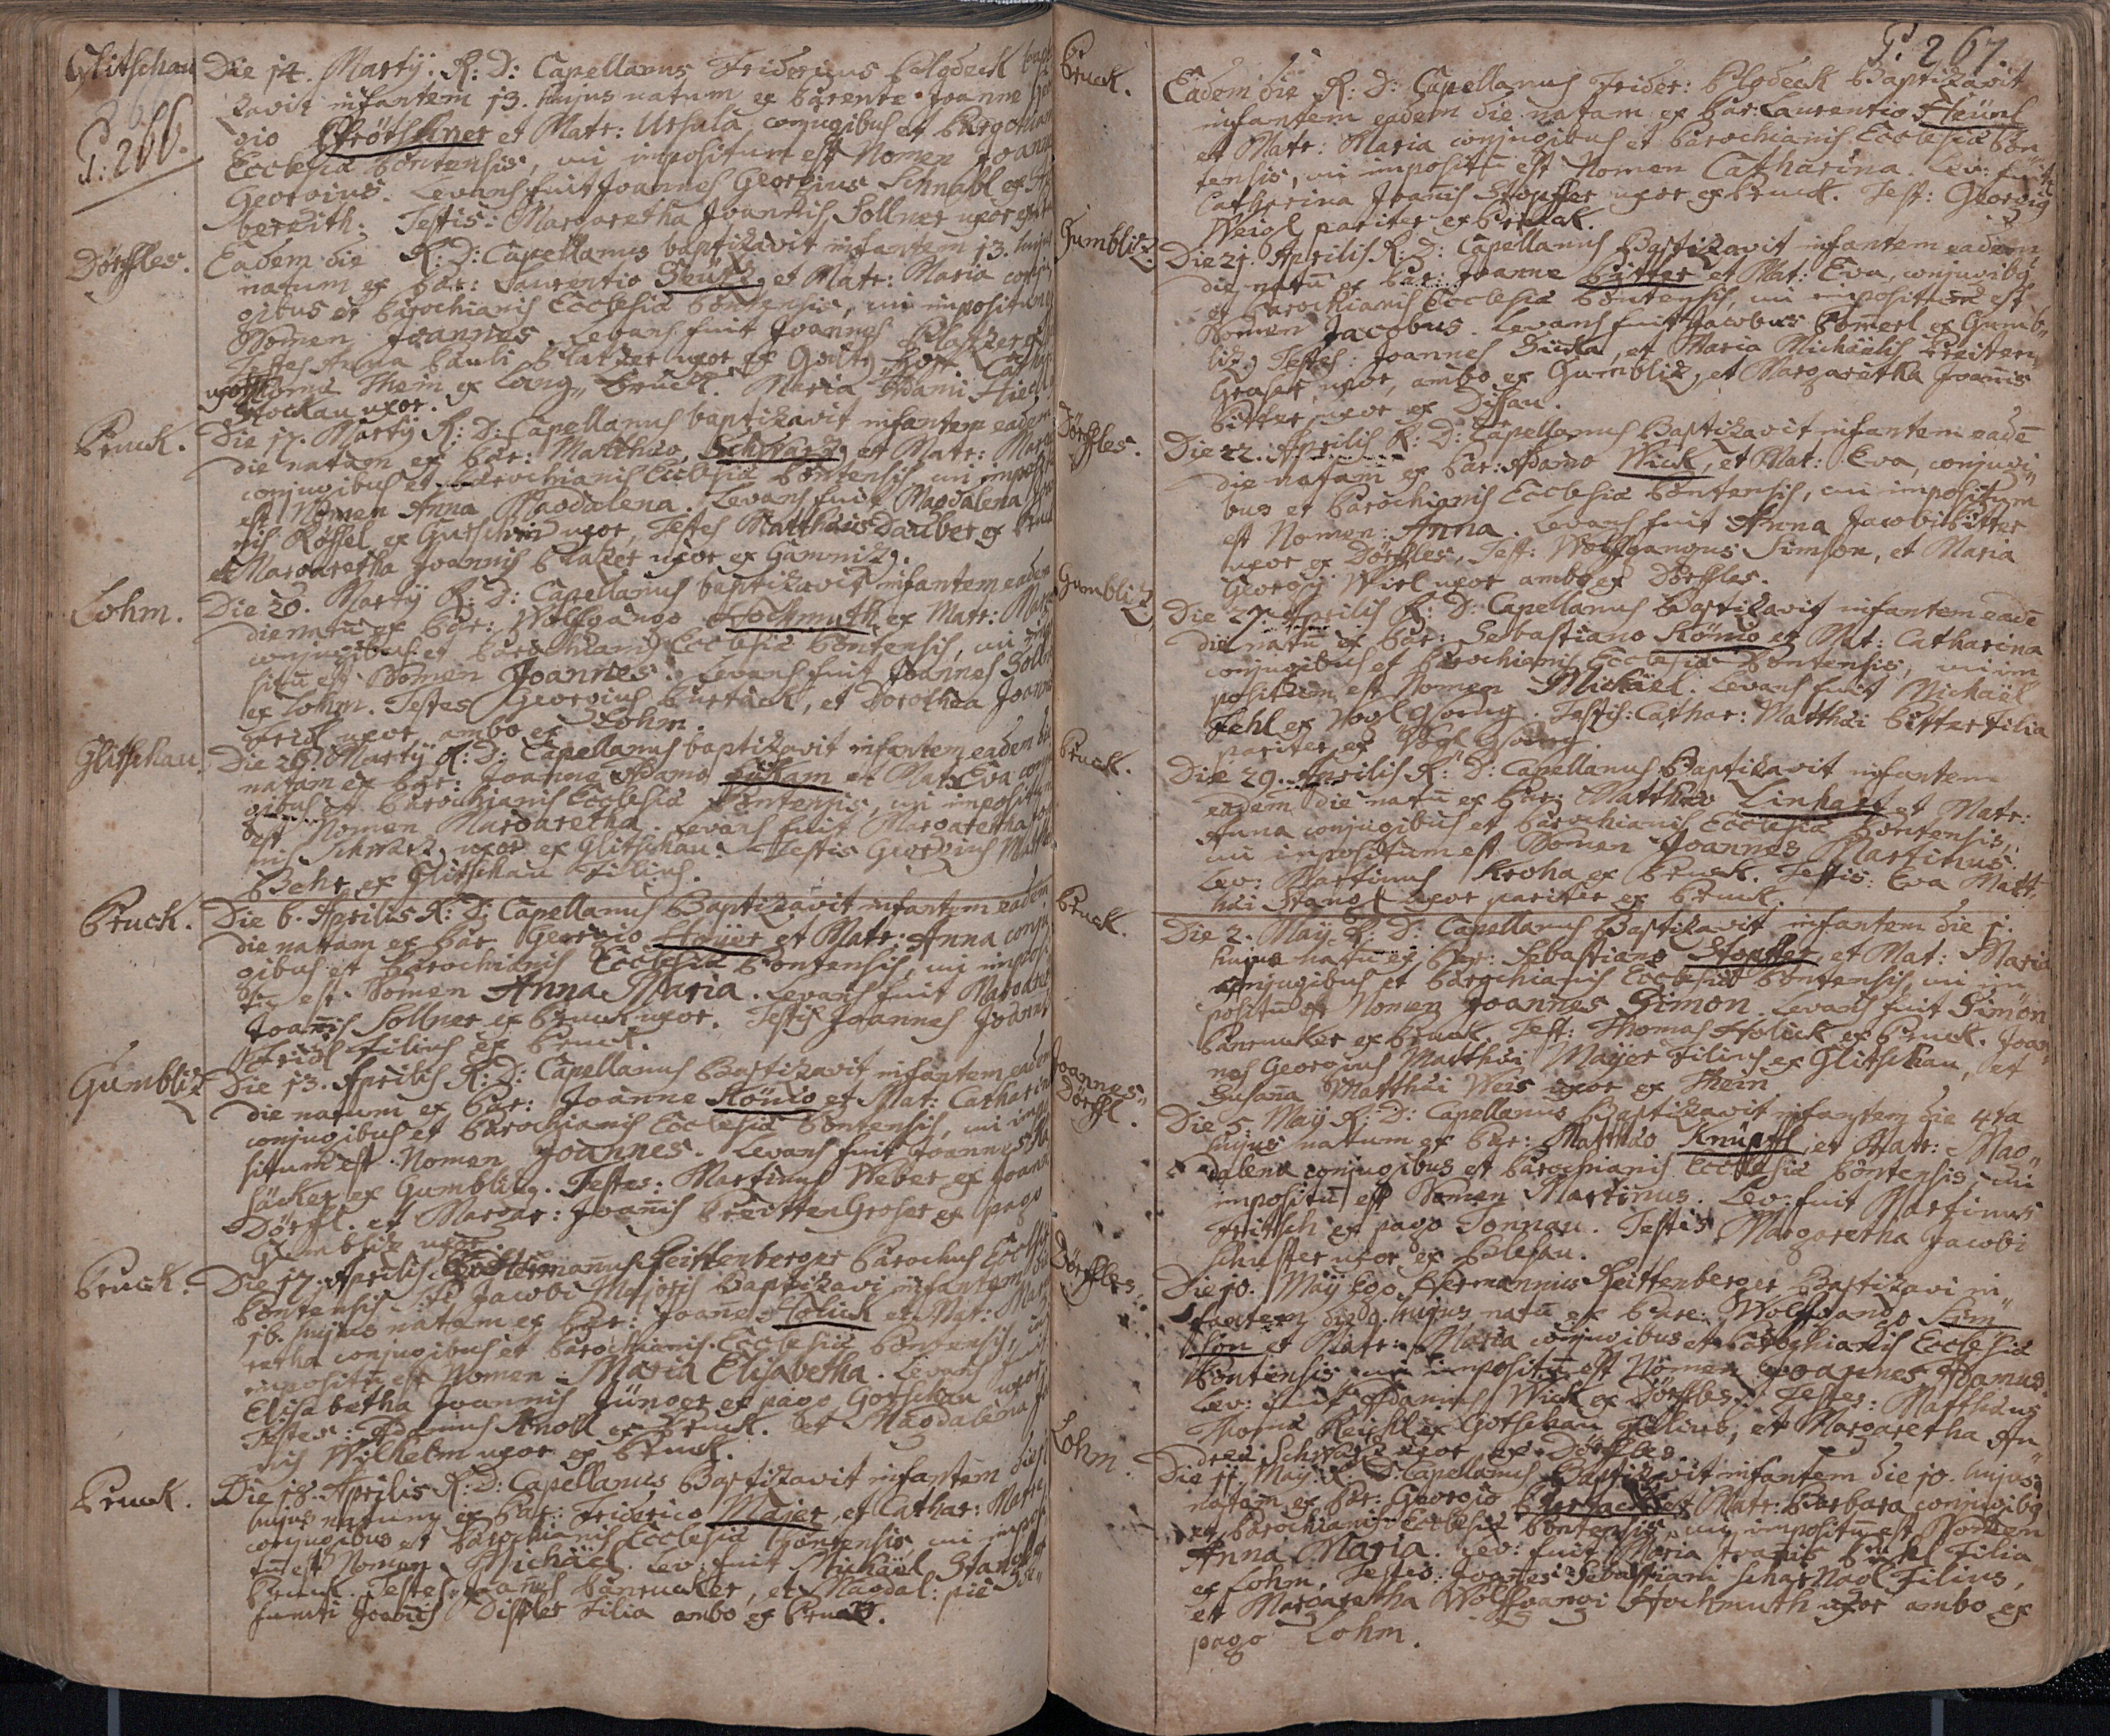 Glitschau
P. 266.
Die 14. Martÿ. R: D: Capellanus Fridericus Plodeck
zavit infantem 13. hujus natum ex Parente Joanne
gio Ströhner et Matr: Ursula, conjugibus et Parochian
Ecclesiæ Pontensis, cui impositum est Nomen Joann
Georgius. Levans fuit Joannes Georgius Schnabl ex
bereith. Testis: Margaretha Joannis Sollner uxor ex
Dörfles.
Eadem die R: D: Capellanus baptizavit infantem 13. hujus
natum ex Par: Laurentio et Matr: Maria conju
gibus et Parochianis Ecclesiæ Pontensis, cui impositum
Nomen Joannes. Levans fuit Joannes Plazer
Testes Anna Pauli Plazer uxor ex
uxor Them ex Lang„ Bruck. Maria Adami
Stockau uxor.
Pruck.
Die 17. Martÿ R: D: Capellanus baptizavit infantem eadem
die natam ex Par: Matthæo Schwarz, et Matr: Maria
conjugibus et Parochianis Ecclesiæ Pontensis, cui imposi
est Nomen Anna Magdalena. Levans fuit Magdalena
nis Rössel ex uxor, Testes Matthæus Dauber ex Pruck
et Margaretha Joannis Plazer uxor ex Gämniz.
Lohm.
Die 20. Martÿ R: D: Capellanus baptizavit infantem eadem
die natū ex Par: Wolfgango Hochmuth ex Matr:
conjugibus et Parochianis Ecclesiæ Pontensis, cui impo
sitū est Nomen Joannes. Levans fuit Joannes
ex Lohm. Testes Georgius et Dorothea Joannis
uxor ambo ex Lohm.
Glitschau
Die 26. Martÿ R: D: Capellanus baptizavit infantem eadem die
natam ex Par: Joanne Adamo et Matr: Eva conju
gibus et Parochianis Ecclesiæ Pontensis, cui impositum
est Nomen Margaretha. Levans fuit Margaretha
nis Schwarz uxor ex Glitschau. Testis Georgius
Behr ex Glitschau Filius.
Pruck.
Die 6. Aprilis R: D: Capellanus Baptizavit infantem eadem
die natam ex Par. Georgio Maÿer et Matr: Anna conju
gibus et Parochianis Ecclesiæ Pontensis, cui imposi
tū est Nomen Anna Maria. Levans fuit
Joānis Sollner ex Pruck uxor. Testis Joannes Joannis
Fridl Filius ex Pruck.
Gumbliz
Die 13. Aprilis R: D: Capellanus Baptizavit infantem eadem
die natum ex Par: Joanne König et Mat: Catharin
conjugibus et Parochianis Ecclesiæ Pontensis, cui impo
situm est Nomen Joannes. Levans fuit Joannes
häcker ex Gumbliz. Testes: Martinus Weber ex Joann
Dörfl. et Margar: Joānis BreittenGroser ex pago
Gumbliz uxor.
Pruck.
Die 17. Aprilis Ego Hermannus Reittenberger Parochus Eccles
Pontensis Sti Jacobi Majoris Baptizavi infantem
16. hujus natam ex Par: Joane Holick et Mat: Marga
retha conjugibus et Parochianis Ecclesiæ Pontensis, cui
impositū est Nomen Maria Elisabetha. Levans fuit
Elisabetha Joannis Jünger ex pago Gotschau uxor
Testes: Adamus Knoll ex Pruck. et Magdalena
nis Wilhelm uxor ex Pruck.
Pruck.
Die 18. Aprilis R: D: Capellanus Baptizavit infantem die
hujus natum ex Par: Friderico Majer, et Cathar: Matre
conjugibus et Parochianis Ecclesiæ Pontensis cui imposi
tū est Nomen Michäel. Lev: fuit Michäel Stangl ex
Pruck. Testes: Joānes Panrucker, et Magdal: piè De„
functi Joānis Distler Filia ambo ex Pruck.
P. 267.
Pruck.
Eadem die R: D: Capellanus Frider: Plodeck Baptizavit
infantem eadem die natam ex Par: Laurentio Heünl
et Matr: Maria conjugibus et Parochianis Ecclesiæ Pon„
tensis, cui impositū est Nomen Catharina. Lev: fuit
Catharina Joānis Stopffer uxor ex Pruck. Test: Georgius
Weigl pariter ex Pruck.
Gumbliz.
Die 21. Aprilis R: D: Capellanus Baptizavit infantem eadem
die natū ex Par: Joanne Pitter et Mat: Eva, conjugibus
et Parochianis Ecclesiæ Pontensis, cui impositum est
Nomen Jacobus. Levans fuit Jacobus Pomerl ex Gumb„
liz, Testes: Joannes et Maria Michäelis Breiten„
Graser uxor, ambo ex Gumbliz, et Margaretha Joānis
Pitter uxor ex Dißau.
Dörfles.
Die 22. Aprilis R: D: Capellanus Baptizavit infantem eadē
die natam ex Par: Adamo Wick, et Mat: Eva, conjugi„
bus et Parochianis Ecclesiæ Pontensis, cui impositum
est Nomen: Anna. Levans fuit Anna Jacobi Pitter
uxor ex Dörfles, Test: Wolfgangus Simson, et Maria
Georgÿ Wirl uxor ambo ex Dörfles.
Gumbliz
Die 27. Aprilis R: D: Capellanus Baptizavit infantem eadē
die natū ex Par: Sebastiano König et Mat: Catharina
conjugibus et Parochianis Ecclesiæ Pontensis, cui im
positum est Nomen Michäel. Levans fuit Michäel
Fehl ex Vogl Gsang. Testis: Cathar: Matthæi Pitter filia
pariter ex Vogl Gsang.
Pruck.
Die 29. Aprilis R: D: Capellanus Baptizavit infantem
eadem die natū ex Par: Matthæo Linhart et Matr:
Anna conjugibus et Parochianis Ecclesiæ Pontensis,
cui impositum est Nomen Joannes Martinus
Lev: Martinus Kroha ex Pruck. Testis: Eva Matt„
hæi Stangl uxor pariter ex Pruck.
Pruck.
Die 2. Maÿ R: D: Capellanus Baptizavit infantem die 1.
hujus natū ex Par: Sebastiano Stopffer et Mat: Maria
conjugibus et Parochianis Ecclesiæ Pontensis, cui im
positū est Nomen Joannes Simon. Levans fuit Simon
Panrucker ex Pruck. Test: Thomas Holick ex Pruck. Joan„
nes Georgius Matthæi Maÿer Filius ex Glitschau, et
Susaña Matthæi Weis uxor ex Thein
Joannes„
Dörfl.
Die 5. Maÿ R: D: Capellanus Baptizavit infantem die 4ta
hujus natum ex Par: Matthæo Knüpffl, et Matr: Mag„
dalena conjugibus et Parochianis Ecclesiæ Pontensis, cui
impositū est Nomen Martinus. Lev: fuit Martinus
Fritsch ex pago Tonnau. Testis Margaretha Jacobi
Schuster uxor ex
Dörfles.
Die 10. Maÿ Ego Hermannus Reittenberger Baptizavi in„
fantem die 9. hujus natū ex Pare: Wolffgango Sim„
son et Matr: Maria conjugibus et Parochianis Ecclesiæ
Pontensis cui impositū est Nomen Joannes Adamus.
Lev: fuit Adamus Wick ex Dörfles. Testes: Matthæus
Thomæ Reichl ex Gotschau Filius, et Margaretha An„
dreæ Schwarz uxor ex Dörfles
Lohm.
Die 11. Maÿ R: D: Capellanus Baptizavit infantem die 10. hujus
natam ex Par: Georgio et Matr: Barbara conjugibus
et Parochianis Ecclesiæ Pontensis, cui impositū est Nomen
Anna Maria. Lev: fuit Maria Joānis Filia
ex Lohm. Testes: Joānes Sebastiani Scharnagl Filius,
et Margaretha Wolffgangi Hochmuth uxor ambo ex
pago Lohm.